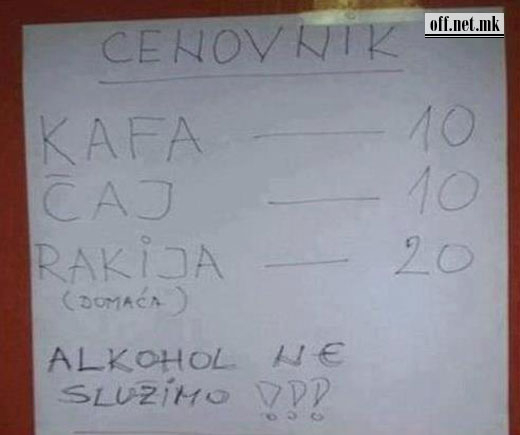 off.net.mk
CENOVNIK
KAFA — 10
ČAJ — 10
RAKIJA — 20
(DOMAĆA)
ALKOHOL NE
SLUŽIMO !!!